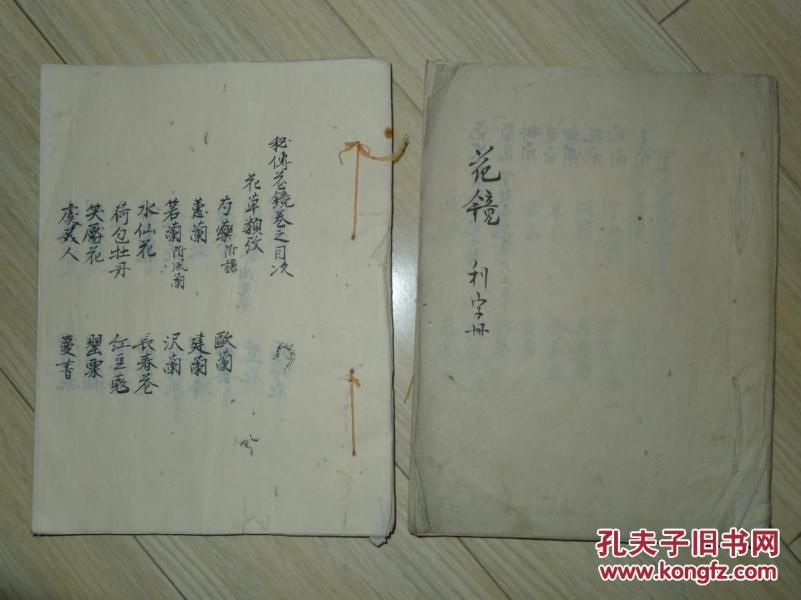 秘傳花鏡卷之目次
花草類攷
芍藥附譜 歐蘭
蕙蘭 建蘭
箬蘭附风蘭 沢蘭
水仙花 長春花
荷包牡丹 紅豆蔻
笑靨花 罌栗
虞美人 蔓菁
花鏡 利字册
孔夫子旧书网
www.kongfz.com